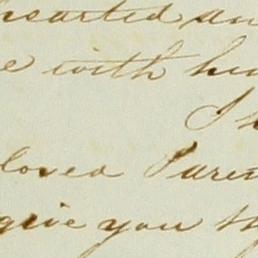 hearted an
e with hu
I
loved Paren
give you th